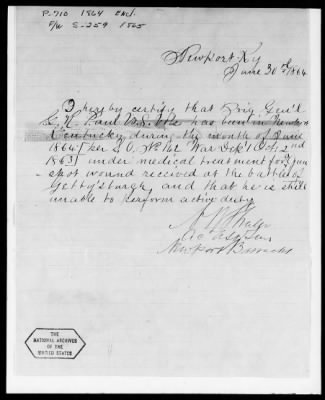 P-710 1864 Encl.
F/W S-259 1865
Newport Ky
June 30th 1864
I hereby certify that Brig Gen'l
G. R. Paul U.S. Vols has been in Newport
Kentucky during the month of June
1864 [per S.O. No 142 War Dept Oct 2nd
1863] under medical treatment for gun
shot wound received at the battle of
Gettysburgh, and that he is still
unable to perform active duty
Act Ass Surg
Newport Barracks
THE
NATIONAL ARCHIVES
OF THE
UNITED STATES